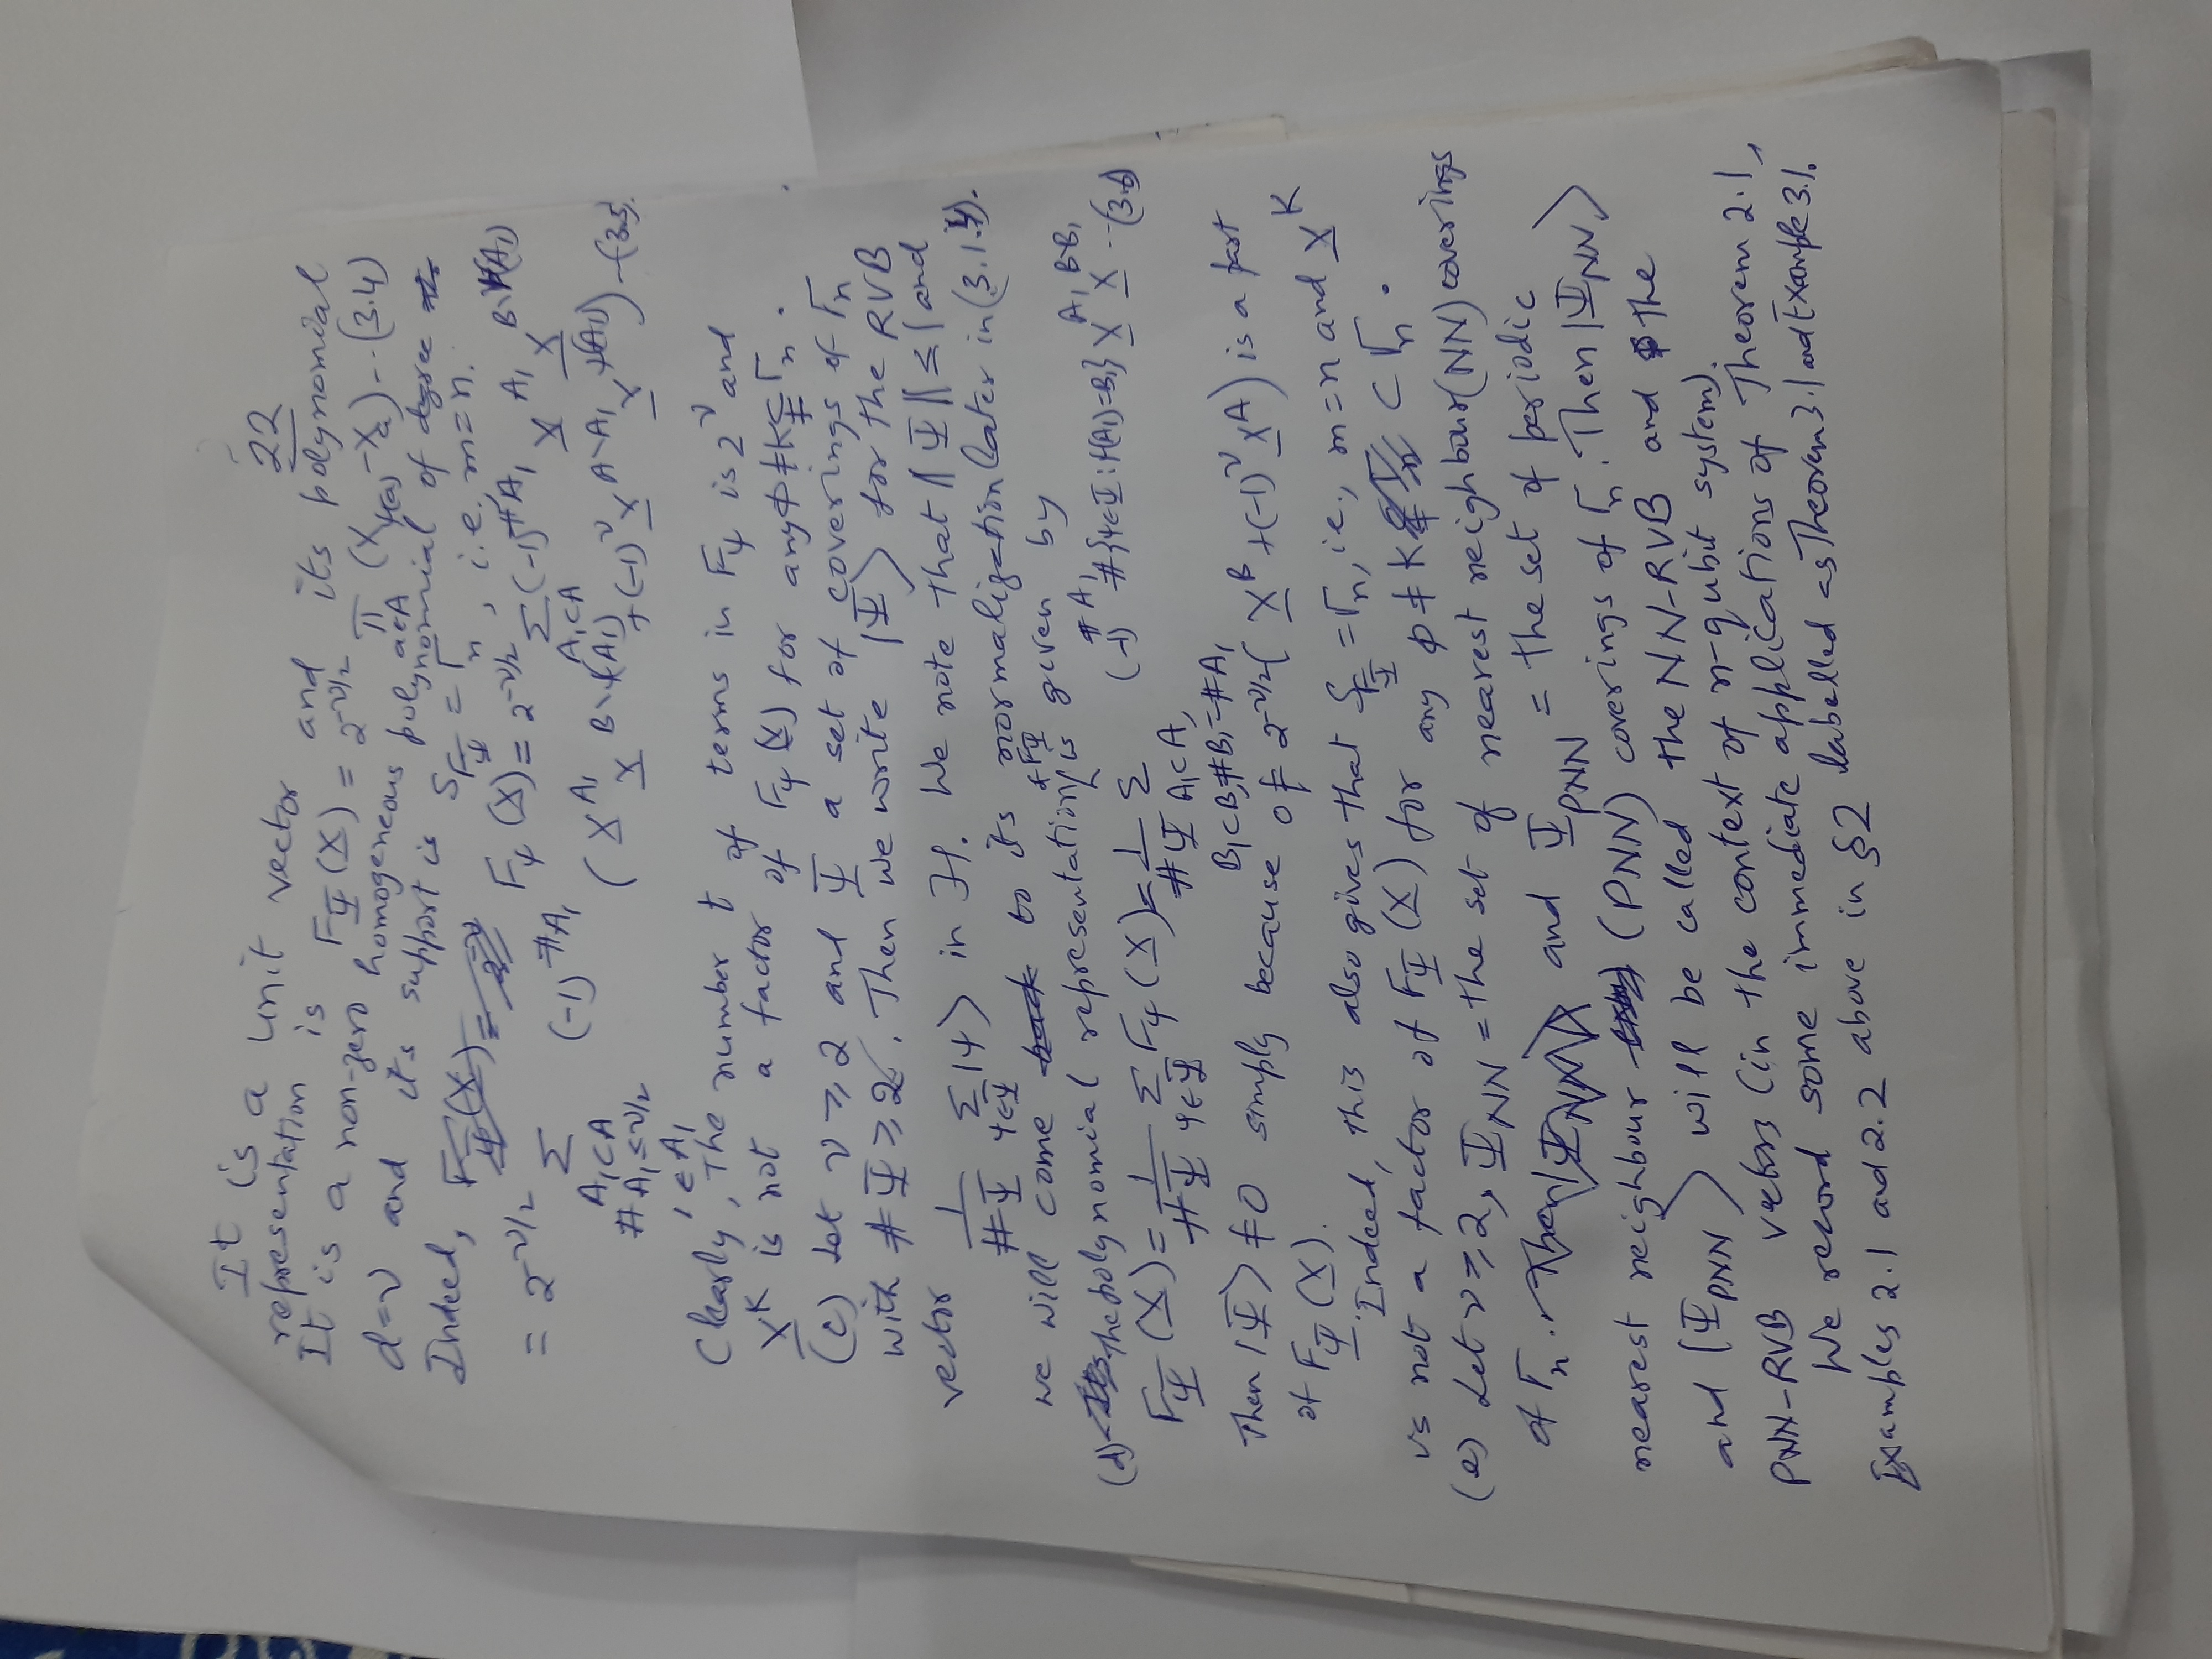 22
It is a unit vector and its polynomial
representation is F_Ψ(X) = 2^{-ν/2} Π_{a∈A} (X_{ψ(a)} - X_a) -- (3.4)
It is a non-zero homogeneous polynomial of degree
d=ν and its support is S_{F_Ψ} = Γ_n, i.e., m=n.
Indeed, F_ψ(X) = 2^{-ν/2} Σ_{A₁⊂A} (-1)^{#A₁} X^{A₁} X^{B∖ψ(A₁)}
= 2^{-ν/2} Σ_{A₁⊂A, #A₁≤ν/2, 1∈A₁} (-1)^{#A₁} (X^{A₁} X^{B∖ψ(A₁)} + (-1)^ν X^{A∖A₁} X^{ψ(A₁)}) - (3.5)
Clearly, The number t of terms in F_ψ is 2^ν and
X^K is not a factor of F_ψ(X) for any ϕ≠K⊊Γ_n.
(c) Let ν≥2 and Ψ a set of coverings of Γ_n
with #Ψ≥2. Then we write |Ψ⟩ for the RVB
vector 1/#Ψ Σ_{ψ∈Ψ} |ψ⟩ in H. We note that ‖Ψ‖≤1 and
we will come to its normalization later in (3.1.4).
(d) The polynomial representation of F_Ψ is given by
F_Ψ(X) = 1/#Ψ Σ_{ψ∈Ψ} F_ψ(X) = 1/#Ψ Σ_{A₁⊂A, B₁⊂B, #B₁=#A₁} (-1)^{#A₁} #{ψ∈Ψ: ψ(A₁)=B₁} X^{A₁} X^{B∖B₁} -- (3.6)
Then |Ψ⟩≠0 simply because of 2^{-ν/2}(X^B + (-1)^ν X^A) is a part
of F_Ψ(X).
Indeed, this also gives that S_{F_Ψ} = Γ_n, i.e., m=n and X^K
is not a factor of F_Ψ(X) for any ϕ≠K ⊂ Γ_n.
(e) Let ν≥2, Ψ_NN = the set of nearest neighbour (NN) coverings
of Γ_n. and Ψ_PNN = the set of periodic
nearest neighbour (PNN) coverings of Γ_n. Then |Ψ_NN⟩
and |Ψ_PNN⟩ will be called the NN-RVB and the
PNN-RVB vectors (in the context of n-qubit system).
We record some immediate applications of Theorem 2.1,
Examples 2.1 and 2.2 above in §2 labelled as Theorem 3.1 and Example 3.1.